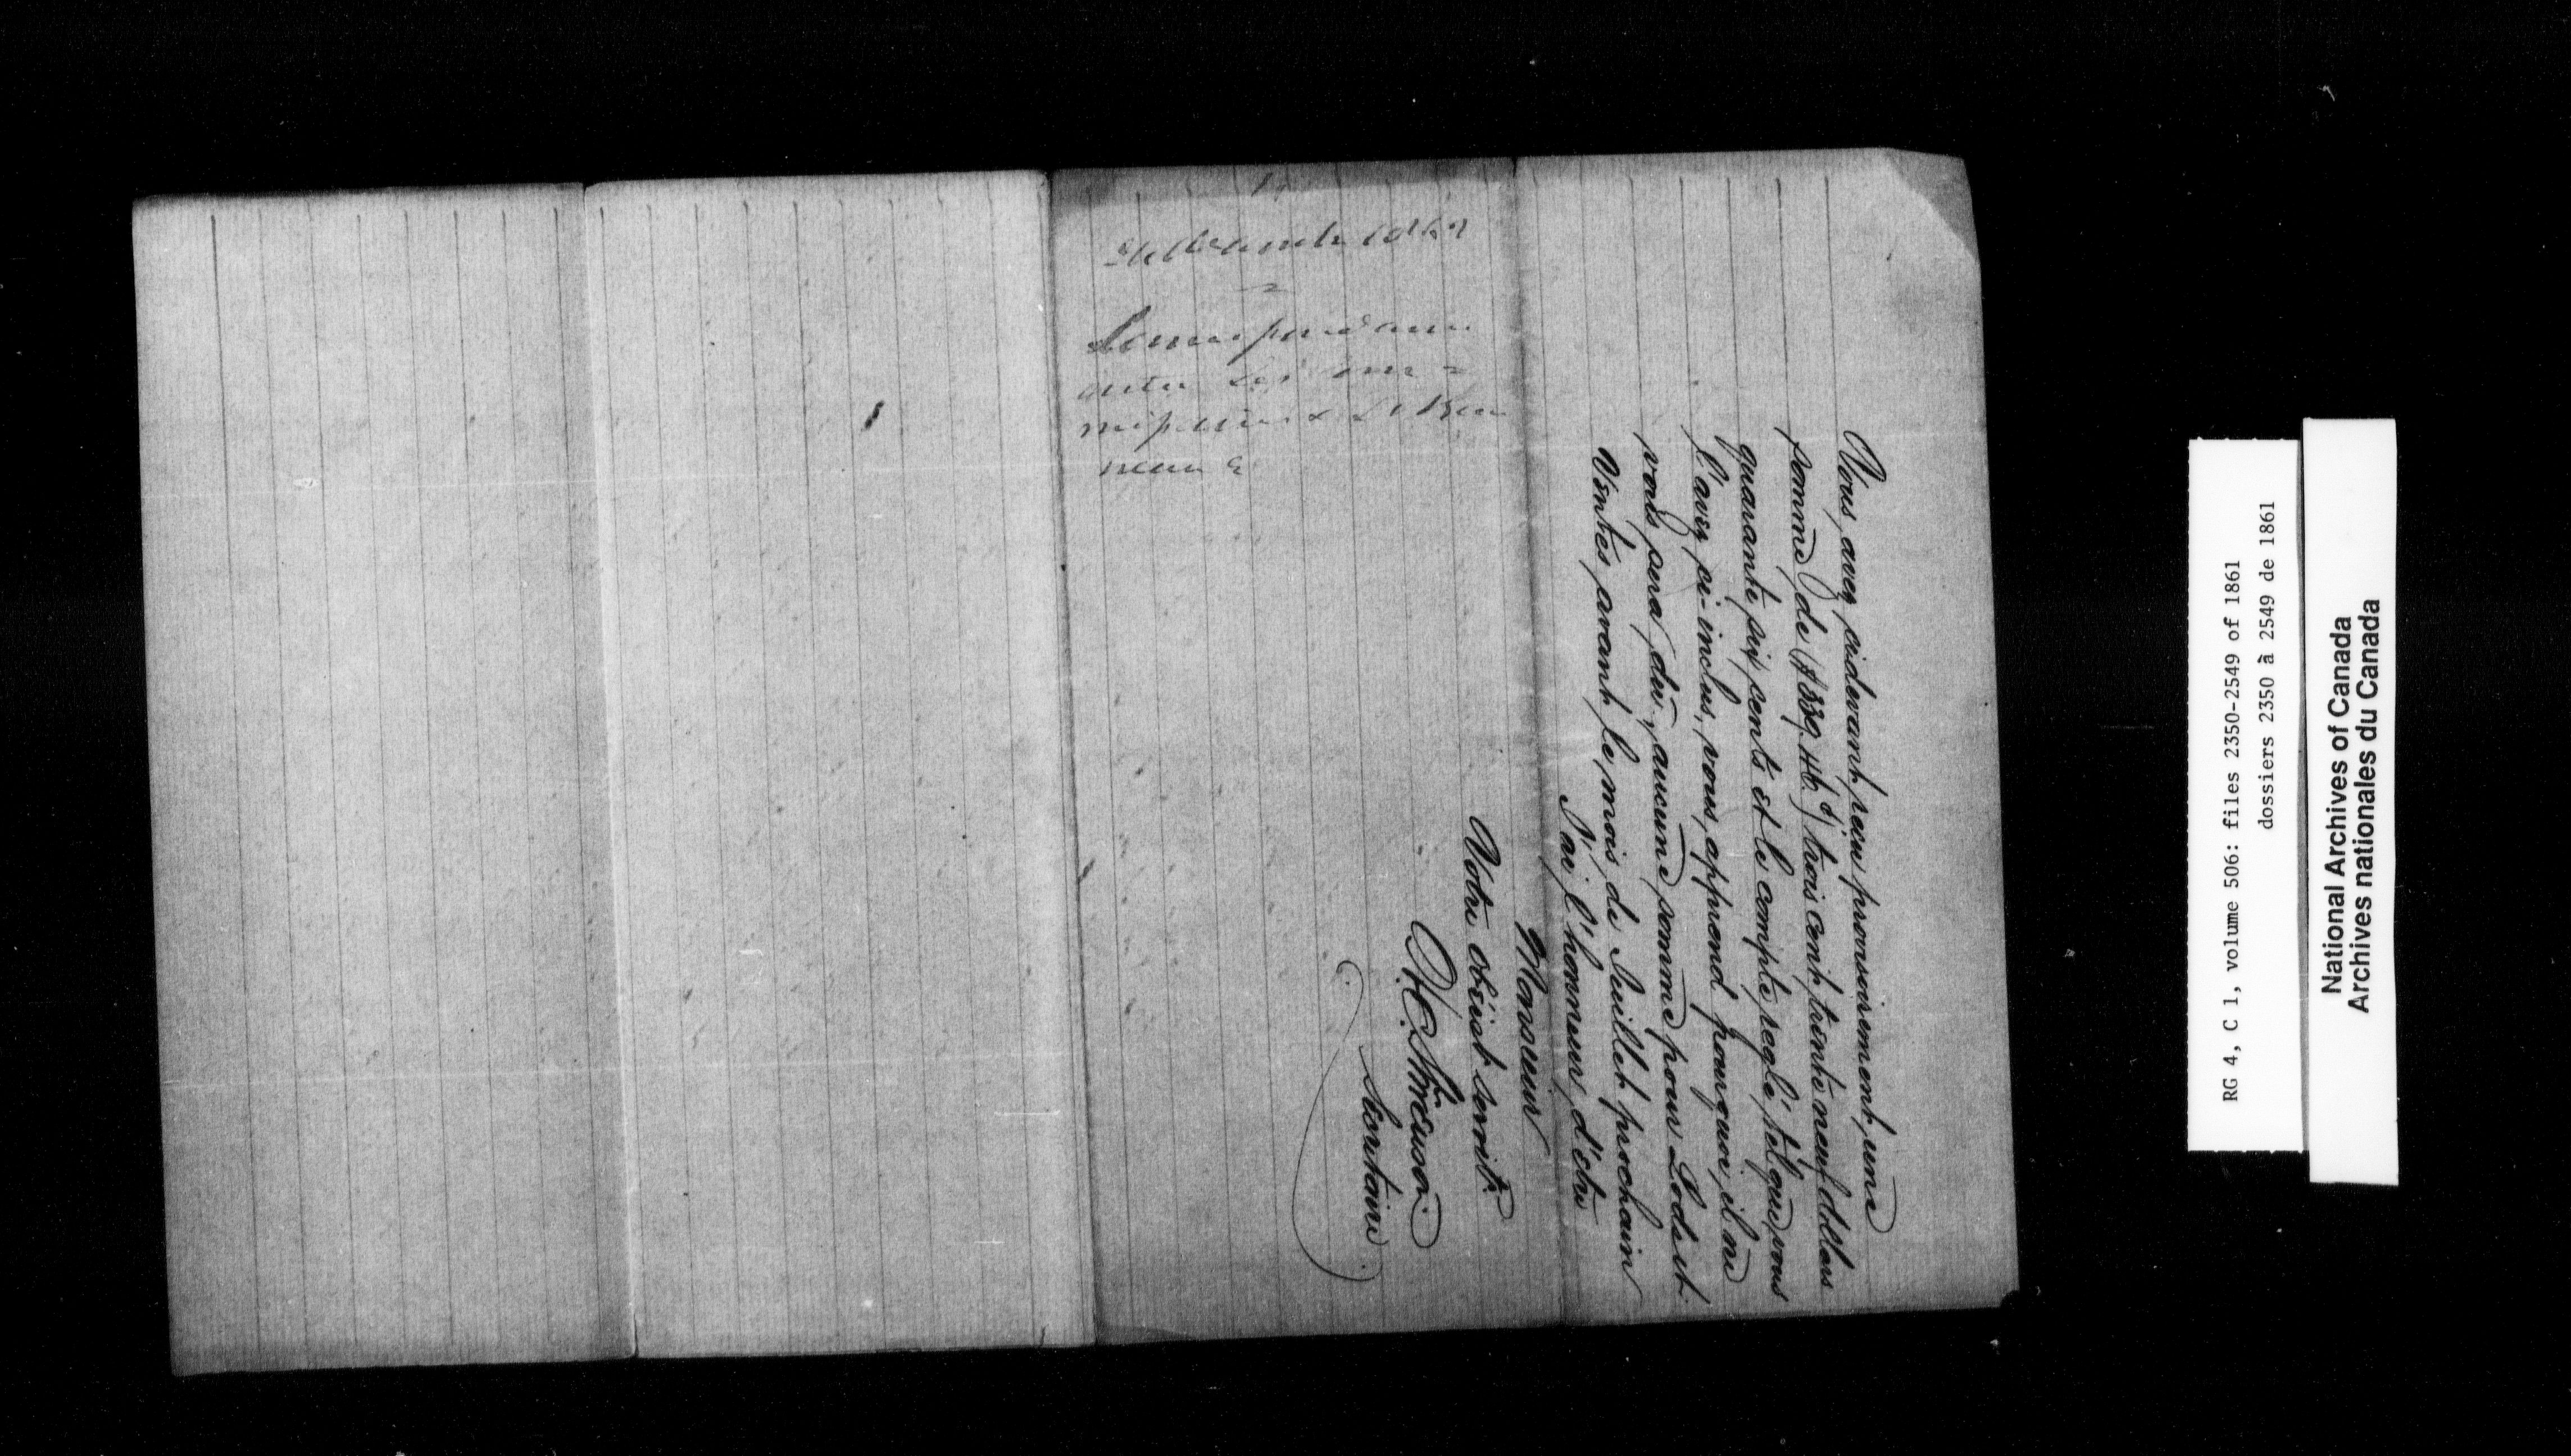 Vous avez cidevant reçu provisoirement, une
somme de ($339.46.cts) trois cent trente neuf dollars
quarante six cents et le compte reglé, tel que vous
l'avez ci-inclus, vous apprend pourquoi, il ne
vous sera dû, aucune somme pour Lods et
Ventes avant le mois de Juillet prochain
J'ai l'honneur d'être
Monsieur
Votre obéist servitr.
Secrétaire
Correspondance
entre les com=
missaires &
RG 4, C 1, volume 506: files 2350-2549 of 1861
dossiers 2350 à 2549 de 1861
National Archives of Canada
Archives nationales du Canada